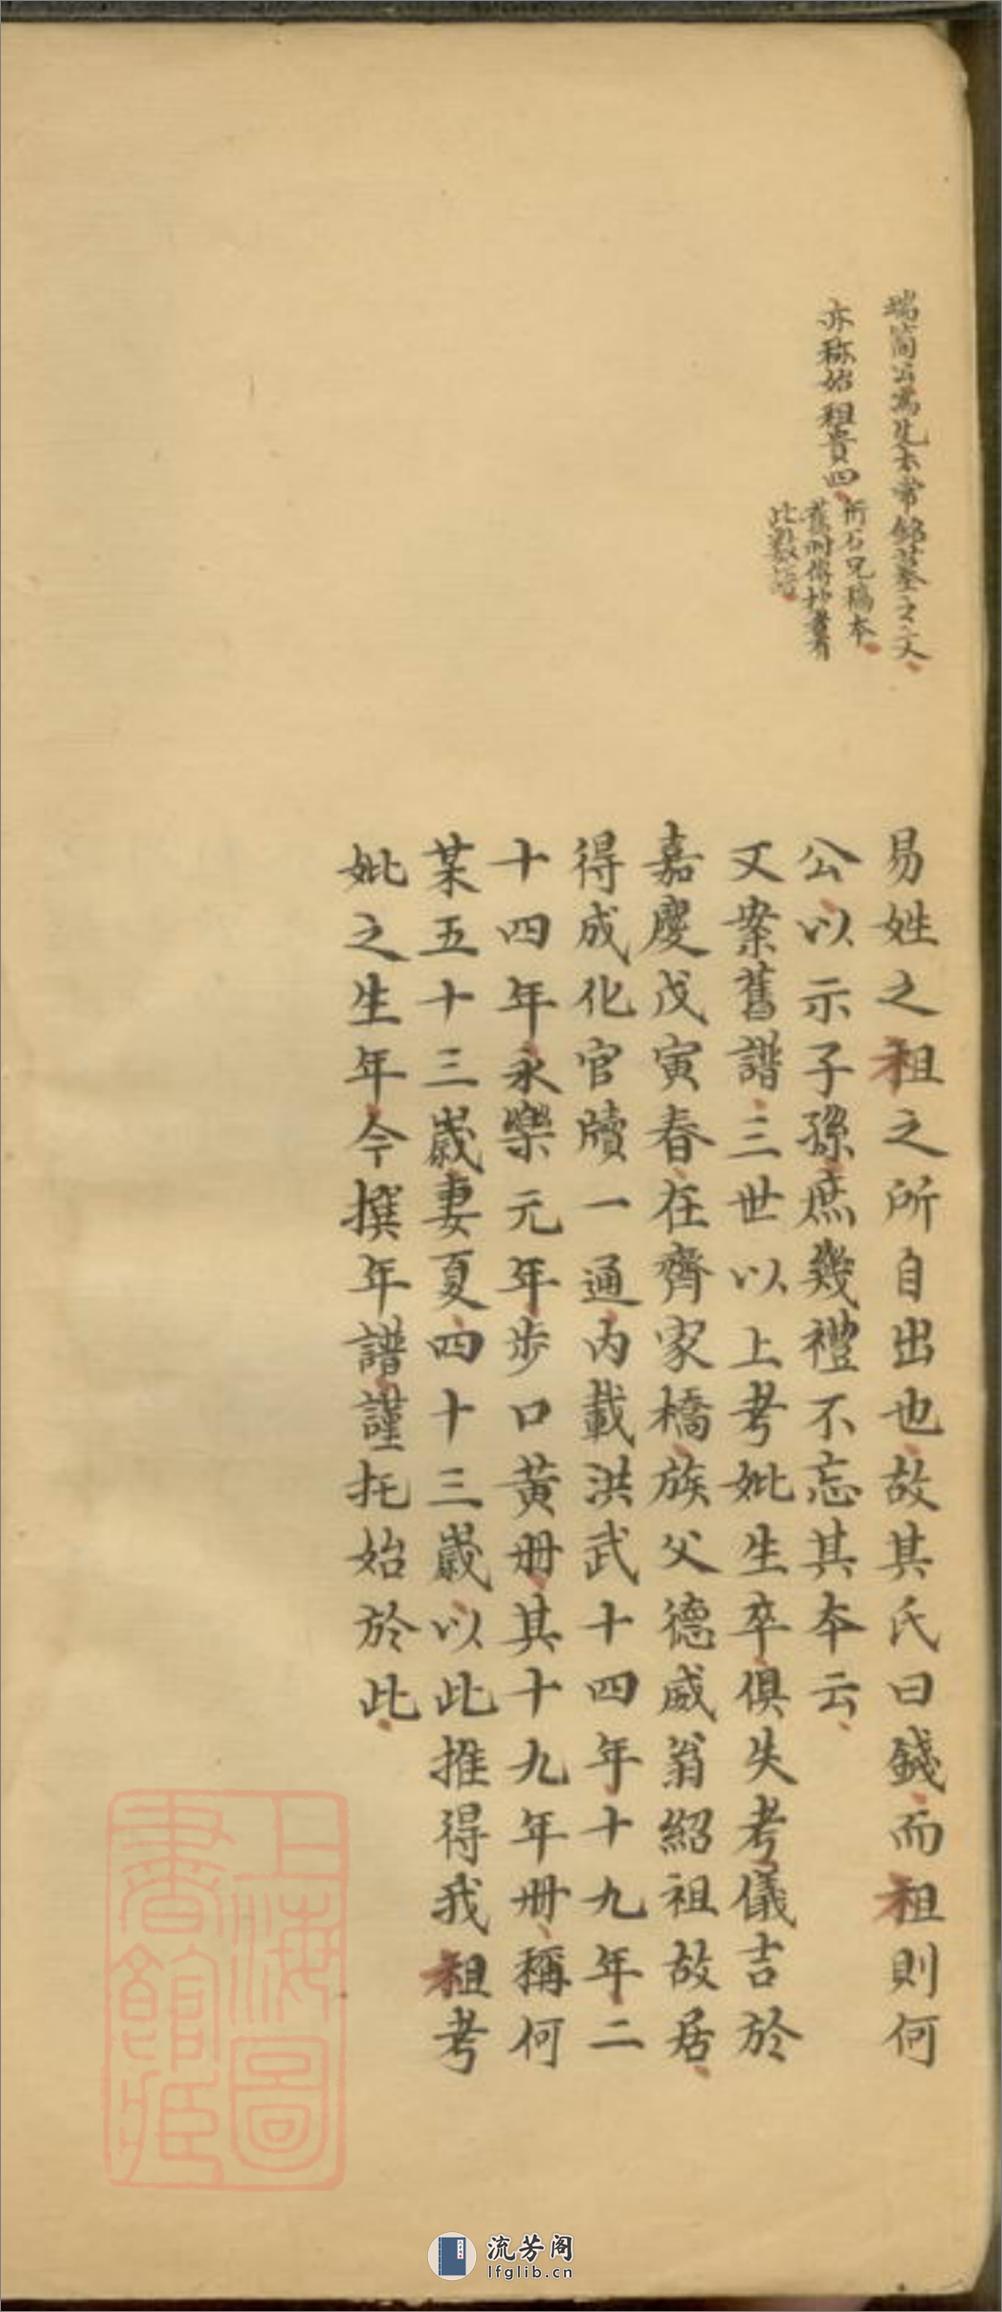 端簡公爲先太常銘墓之文
亦稱始祖貴四
衎石兄稿本
舊附傳抄書有
此數語
易姓之祖之所自出也故其氏曰錢而祖則何
公以示子孫庶幾禮不忘其本云
又案舊譜三世以上考妣生卒俱失考儀吉於
嘉慶戊寅春在齊家橋族父德威翁紹祖故居
得成化官牘一通内載洪武十四年十九年二
十四年永樂元年步口黃冊其十九年冊稱何
某五十三歲妻夏四十三歲以此推得我祖考
妣之生年今撰年譜謹托始於此
上海圖
書館藏
流芳阁
lfglib.cn